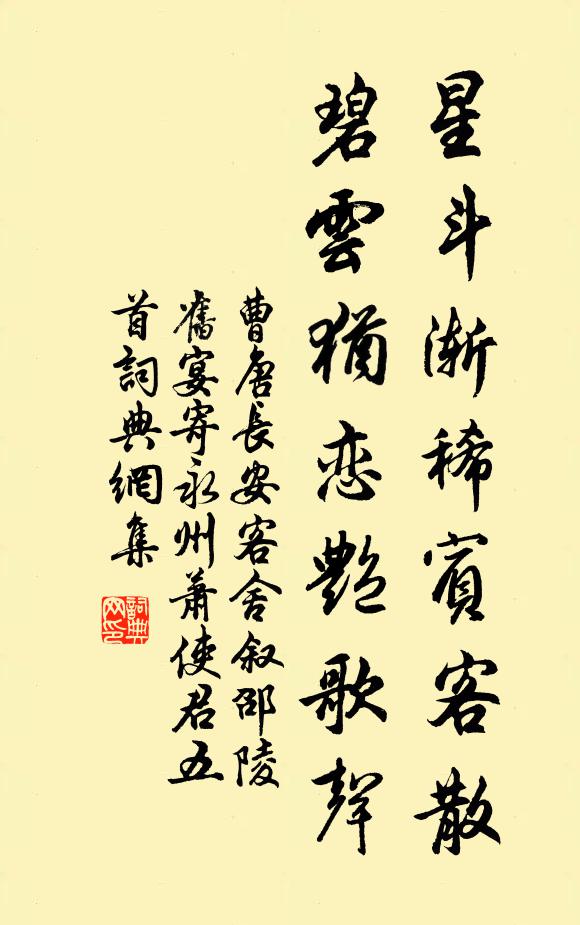 星斗漸稀賓客散
碧雲猶恋艷歌聲
曹唐長安客舍叙邵陵
舊宴寄永州蕭使君五
首詞典網集
詞典
网印